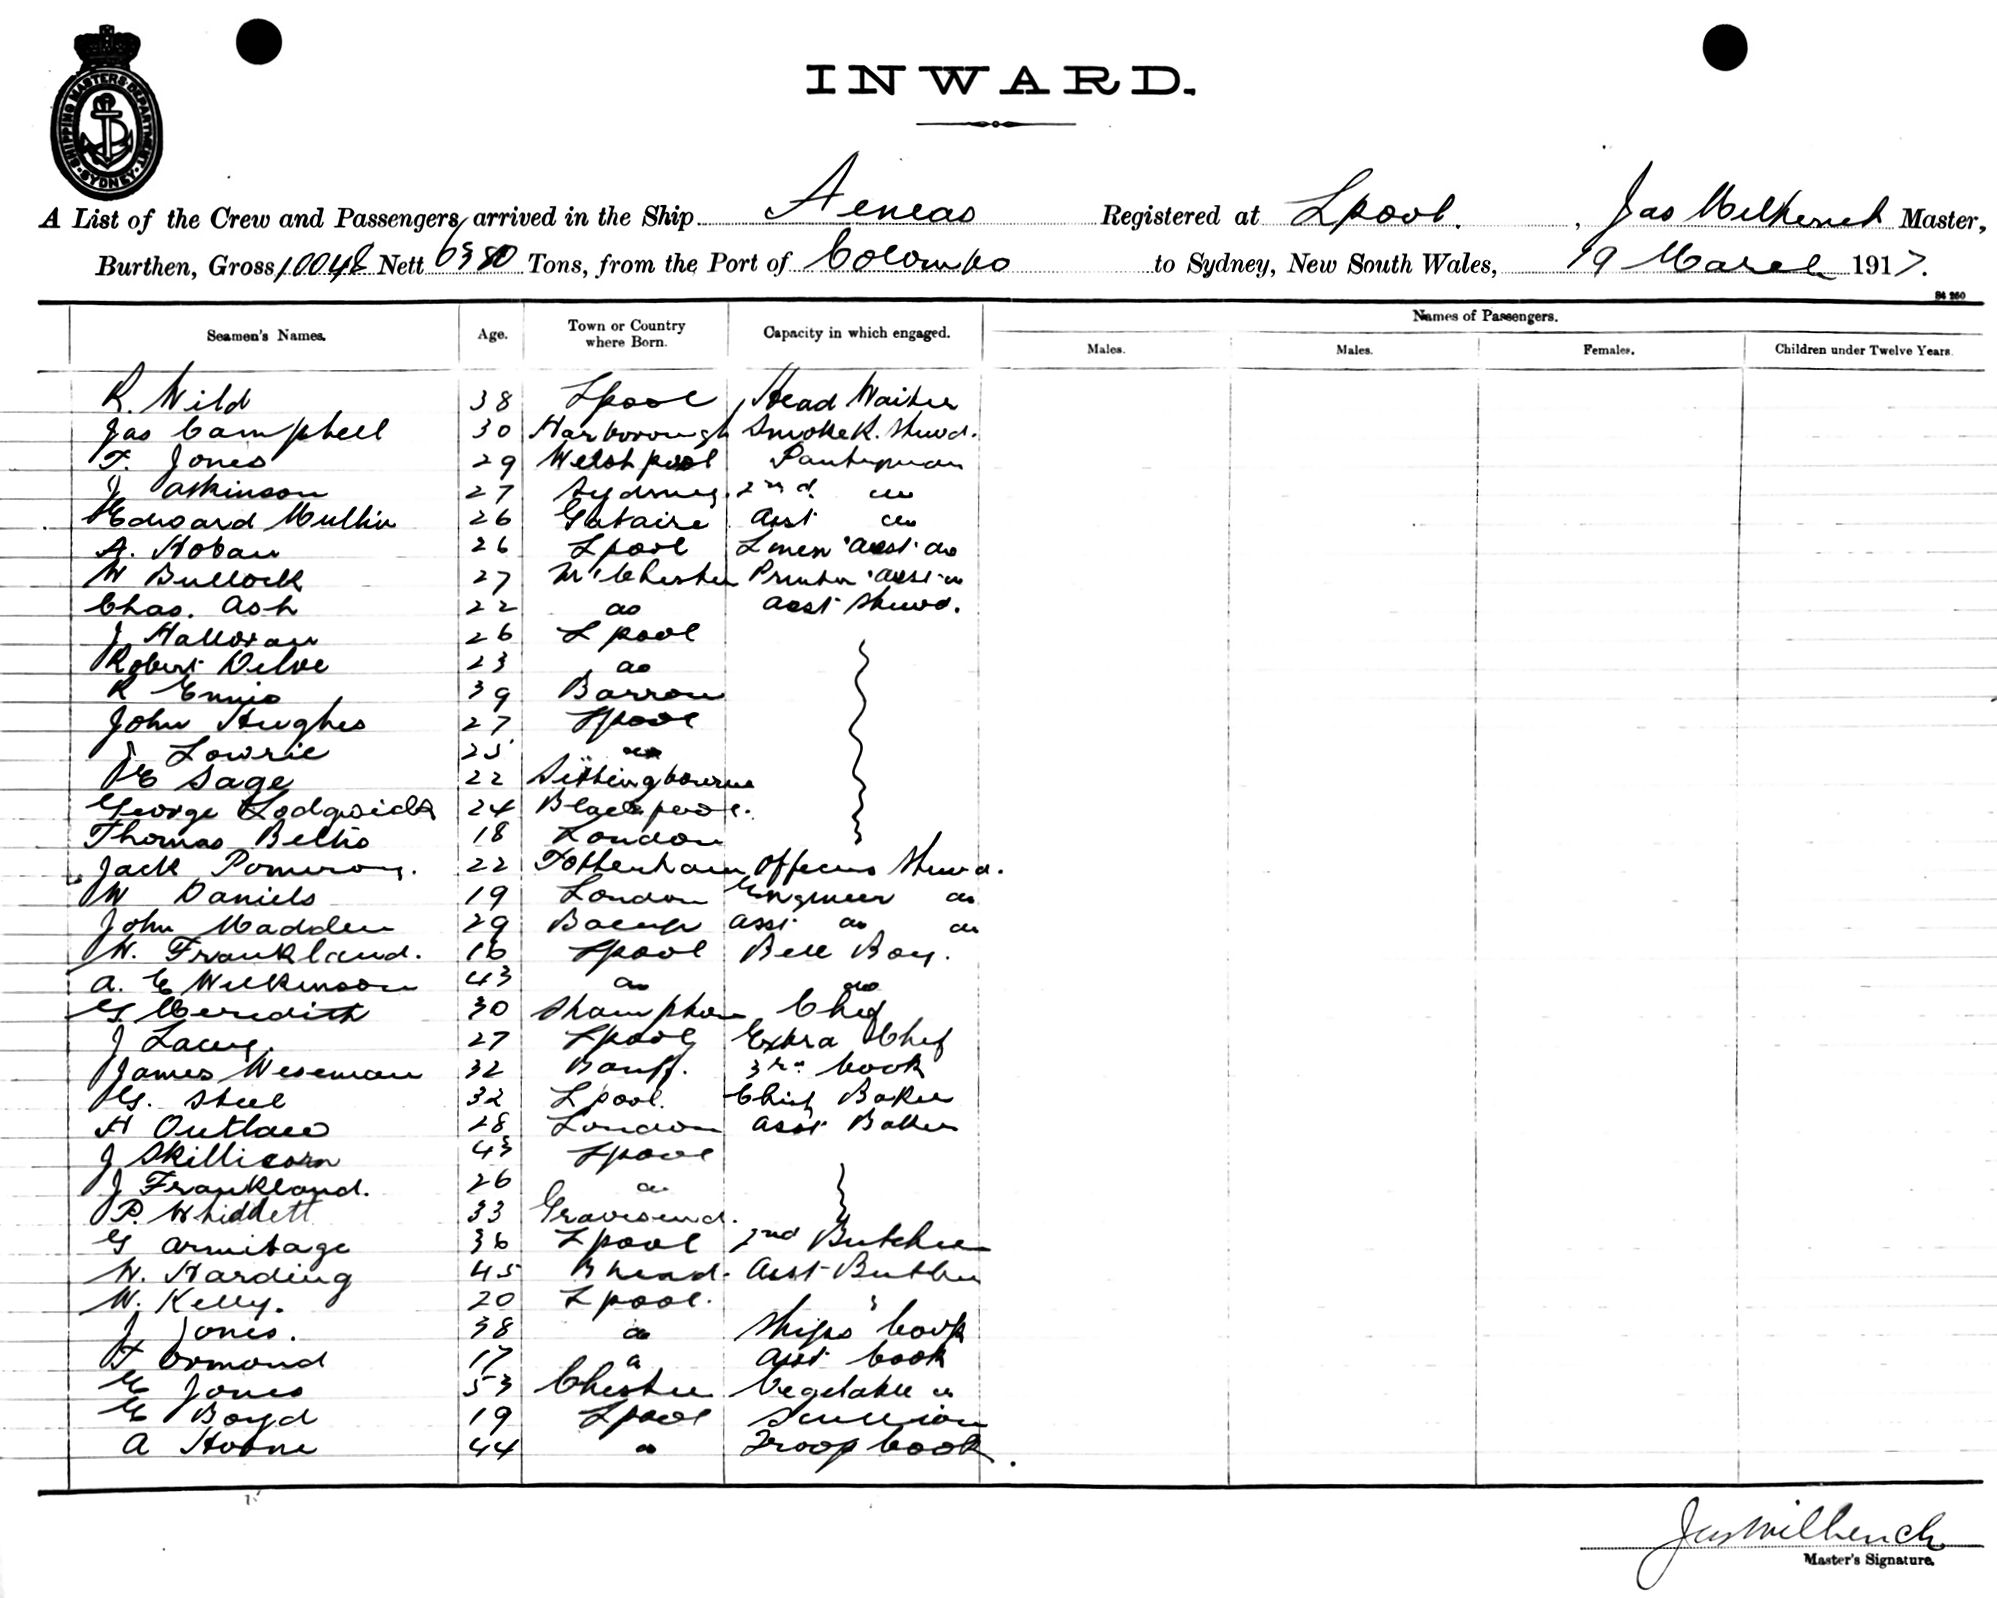 INWARD.
SHIPPING MASTERS DEPARTMENT SYDNEY
A List of the Crew and Passengers arrived in the Ship Aeneas Registered at Lpool. , Jas Milhench Master,
Burthen, Gross 10048 Nett 6380 Tons, from the Port of Colombo to Sydney, New South Wales, 19 March 1917.
Seamen's Names. Age. Town or Country where Born. Capacity in which engaged. Names of Passengers.
Males. Males. Females. Children under Twelve Years.
R. Wild 38 Lpool Head Waiter
Jas Campbell 30 Harborough Smoke R. Stewd.
F. Jones 29 Welshpool Pantryman
J Askinson 27 Sydney. 2nd. do
Edward Mullin 26 Asst do
A. Hoban 26 Lpool Linen Asst do
W Bullock 27 M'Chester Printer Asst do
Chas. Ash 22 do Asst Stewd.
J Halloran 26 Lpool
Robert Delve 23 do
R Ennis 39 Barrow
John Hughes 27 Lpool
J Lowrie 25 do
E Sage 22 Sittingbourne
George 24 Blackpool.
Thomas Bettis 18 London
Jack Pomeroy. 22 Tottenham Officers Stewd.
W Daniels 19 London Engineer do
John Madden 29 Bacup Asst do do
W. Frankland. 16 Lpool Bell Boy.
A. E Wilkinson 43 do do
G. Meredith 30 Chef
J Lacey. 27 Lpool Extra Chef
James Weseman 32 Banff. 3rd Cook
G. Steel 32 Lpool. Chief Baker
H Outlaw 28 London Asst Baker
J Skillicorn 43 Lpool
J Frankland. 26 do
P. Whiddett 33 Gravesend.
G Armitage 36 Lpool 2nd Butcher
W. Harding 45 B'head. Asst Butcher
W. Kelly. 20 Lpool. "
J Jones. 38 do Ships Cook
F Ormond 17 do Asst Cook
E Jones 53 Chester Vegetable do
E Boyd 19 Lpool Scullion
A Horne 44 do Troop Cook.
Jas Milhench
Master's Signature.